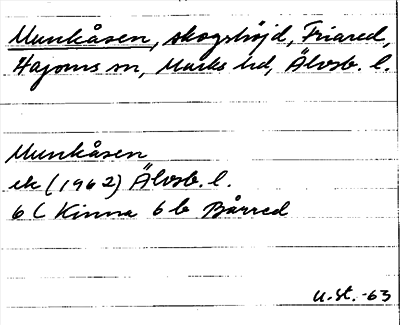 Munkåsen, skogshöjd, Friared,
Hajoms sn, Marks hd, Älvsb. l.
Munkåsen
ek (1962) Älvsb. l.
6 C Kinna 6 b Bårred
U.St.-63